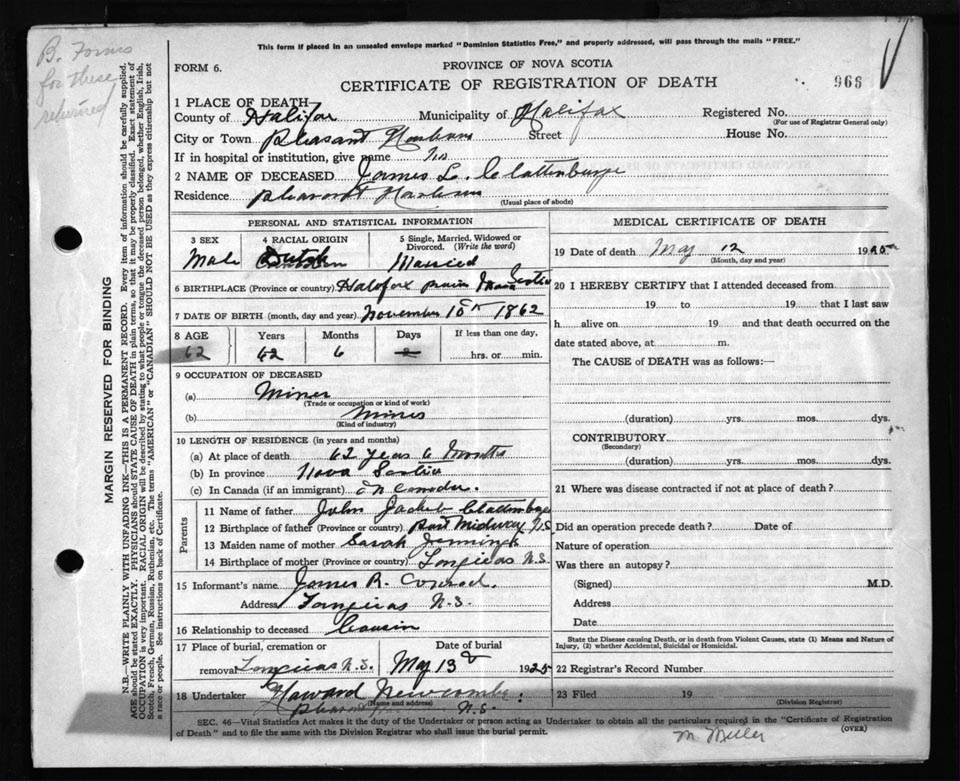 B. Forms
for these
returned
This form if placed in an unsealed envelope marked "Dominion Statistics Free," and properly addressed, will pass through the mails "FREE."
FORM 6.
PROVINCE OF NOVA SCOTIA
CERTIFICATE OF REGISTRATION OF DEATH
966
1 PLACE OF DEATH
County of Halifax Municipality of Halifax Registered No.
(For use of Registrar General only)
City or Town Pleasant Harbour Street House No.
If in hospital or institution, give name No
2 NAME OF DECEASED James L. Clattenburge
Residence Pleasant Harbour
(Usual place of abode)
PERSONAL AND STATISTICAL INFORMATION
3 SEX 4 RACIAL ORIGIN 5 Single, Married, Widowed or Divorced. (Write the word)
Male Dutch Married
6 BIRTHPLACE (Province or country) Halifax Nova Scotia
7 DATE OF BIRTH (month, day and year) November 10th 1862
8 AGE Years Months Days If less than one day,
62 62 6 hrs. or min.
9 OCCUPATION OF DECEASED
(a) Miner
(Trade or occupation or kind of work)
(b) Mines
(Kind of industry)
10 LENGTH OF RESIDENCE (in years and months)
(a) At place of death 62 years 6 Months
(b) In province Nova Scotia
(c) In Canada (if an immigrant) in Canada.
Parents
11 Name of father John Jacob Clattenburge
12 Birthplace of father (Province or country) Port Midway N.S.
13 Maiden name of mother Sarah
14 Birthplace of mother (Province or country) N.S.
15 Informant's name James R. Conrod.
Address N.S.
16 Relationship to deceased Cousin
17 Place of burial, cremation or removal N.S. Date of burial May 13 1925
18 Undertaker Howard Newcombe
(Name and address)
Pleasant N.S.
MEDICAL CERTIFICATE OF DEATH
19 Date of death May 12 1925
(Month, day and year)
20 I HEREBY CERTIFY that I attended deceased from
19 to 19 that I last saw
h alive on 19 and that death occurred on the
date stated above, at m.
The CAUSE of DEATH was as follows:—
(duration) yrs. mos. dys.
CONTRIBUTORY
(Secondary)
(duration) yrs. mos. dys.
21 Where was disease contracted if not at place of death?
Did an operation precede death? Date of
Nature of operation
Was there an autopsy?
(Signed) M.D.
Address
Date
State the Disease causing Death, or in death from Violent Causes, state (1) Means and Nature of
Injury, (2) whether Accidental, Suicidal or Homicidal.
22 Registrar's Record Number
23 Filed 19
(Division Registrar)
SEC. 46—Vital Statistics Act makes it the duty of the Undertaker or person acting as Undertaker to obtain all the particulars required in the "Certificate of Registration
of Death" and to file the same with the Division Registrar who shall issue the burial permit.
(OVER)
M Miller
MARGIN RESERVED FOR BINDING
N.B.—WRITE PLAINLY WITH UNFADING INK—THIS IS A PERMANENT RECORD. Every item of information should be carefully supplied.
AGE should be stated EXACTLY. PHYSICIANS should STATE CAUSE OF DEATH in plain terms, so that it may be properly classified. Exact statement of
OCCUPATION is very important. RACIAL ORIGIN will be described by stating to what people or tongue the deceased person belonged, whether English, Irish,
Scotch, French, German, Russian, Ruthenian, etc. The terms "AMERICAN" or "CANADIAN" SHOULD NOT BE USED as they express citizenship but not
a race or people. See instructions on back of Certificate.